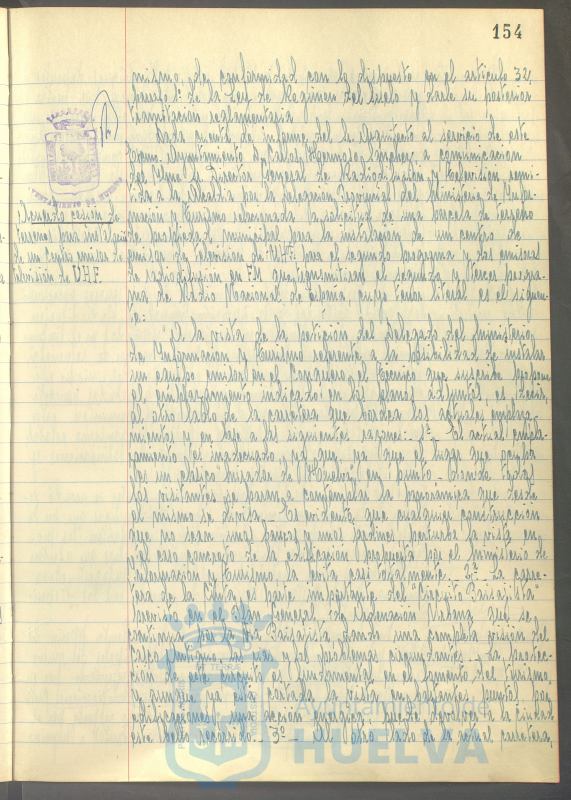 154
mismo, de conformidad con lo dispuesto en el artículo 32,
párrafo 1º de la Ley de Régimen del Suelo y darle su posterior
tramitación reglamentaria
Dada cuenta de informe del Sr. Arquitecto al servicio de este
Excmo. Ayuntamiento D. Carlos Hermoso, a comunicación
del Ilmo. Sr. Director General de Radiodifusión y Televisión remi-
tida a la Alcaldía por la Delegación Provincial del Ministerio de Infor-
mación y Turismo relacionada la solicitud de una parcela de terreno
Acuerdo cesión de
terrenos para instalación
de un Centro emisor de
televisión de UHF.
de propiedad municipal para la instalación de un centro de
emisor de Televisión de UHF para el segundo programa y dos emisoras
de radiodifusión en FM que transmitirán el segundo y tercer progra-
ma de Radio Nacional de España, cuyo tenor literal es el siguien-
te:
A la vista de la petición del Delegado del Ministerio
de Información y Turismo referente a la posibilidad de instalar
un equipo emisor en el Conquero, el Técnico que suscribe propone
el emplazamiento indicado en los planos adjuntos, es decir,
al otro lado de la carretera que bordea los actuales emplaza-
mientos y en base a las siguientes razones: 1ª El actual empla-
zamiento es inadecuado ya que, ya que el lugar que ocupa
es un clásico "mirador de Huelva", en punto donde todos
los visitantes se paran a contemplar la panorámica que desde
el mismo se divisa. Es evidente que cualquier construcción
que no sean unos bancos y unos jardines perturba la vista, en
el caso concreto de la edificación propuesta por el Ministerio de
Información y Turismo, la corta casi totalmente. 2ª La carre-
tera de la Cinta es parte importante del "Circuito Paisajista"
previsto en el Plan General de Ordenación Urbana que se
continúa por la Vía Paisajista, dando una completa visión del
casco antiguo, la ría y los problemas circundantes. La protec-
ción de este circuito es fundamental en el fomento del turismo,
y aunque ya está cortada la vista en bastantes puntos por
edificaciones, una acción enérgica puede devolver a la Ciudad
este bello recorrido. 3º Al otro lado de la actual carretera,
Ayuntamiento de
HUELVA